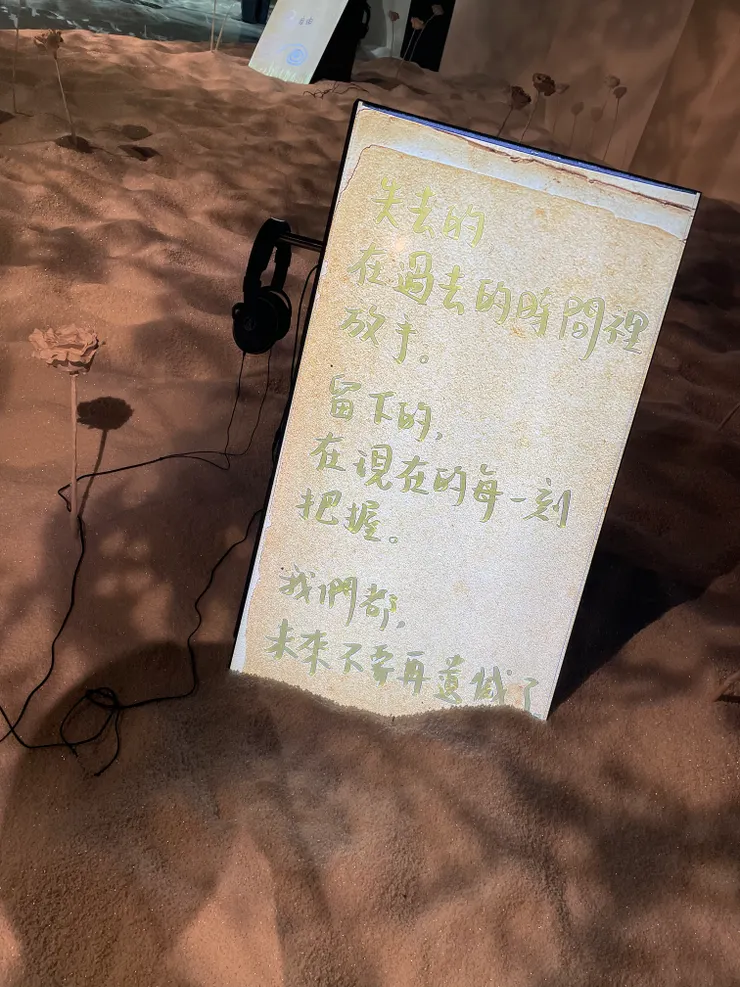 失去的,
在過去的時間裡
放手。
留下的,
在現在的每一刻
把握。
我們都,
未來不要再遺憾了